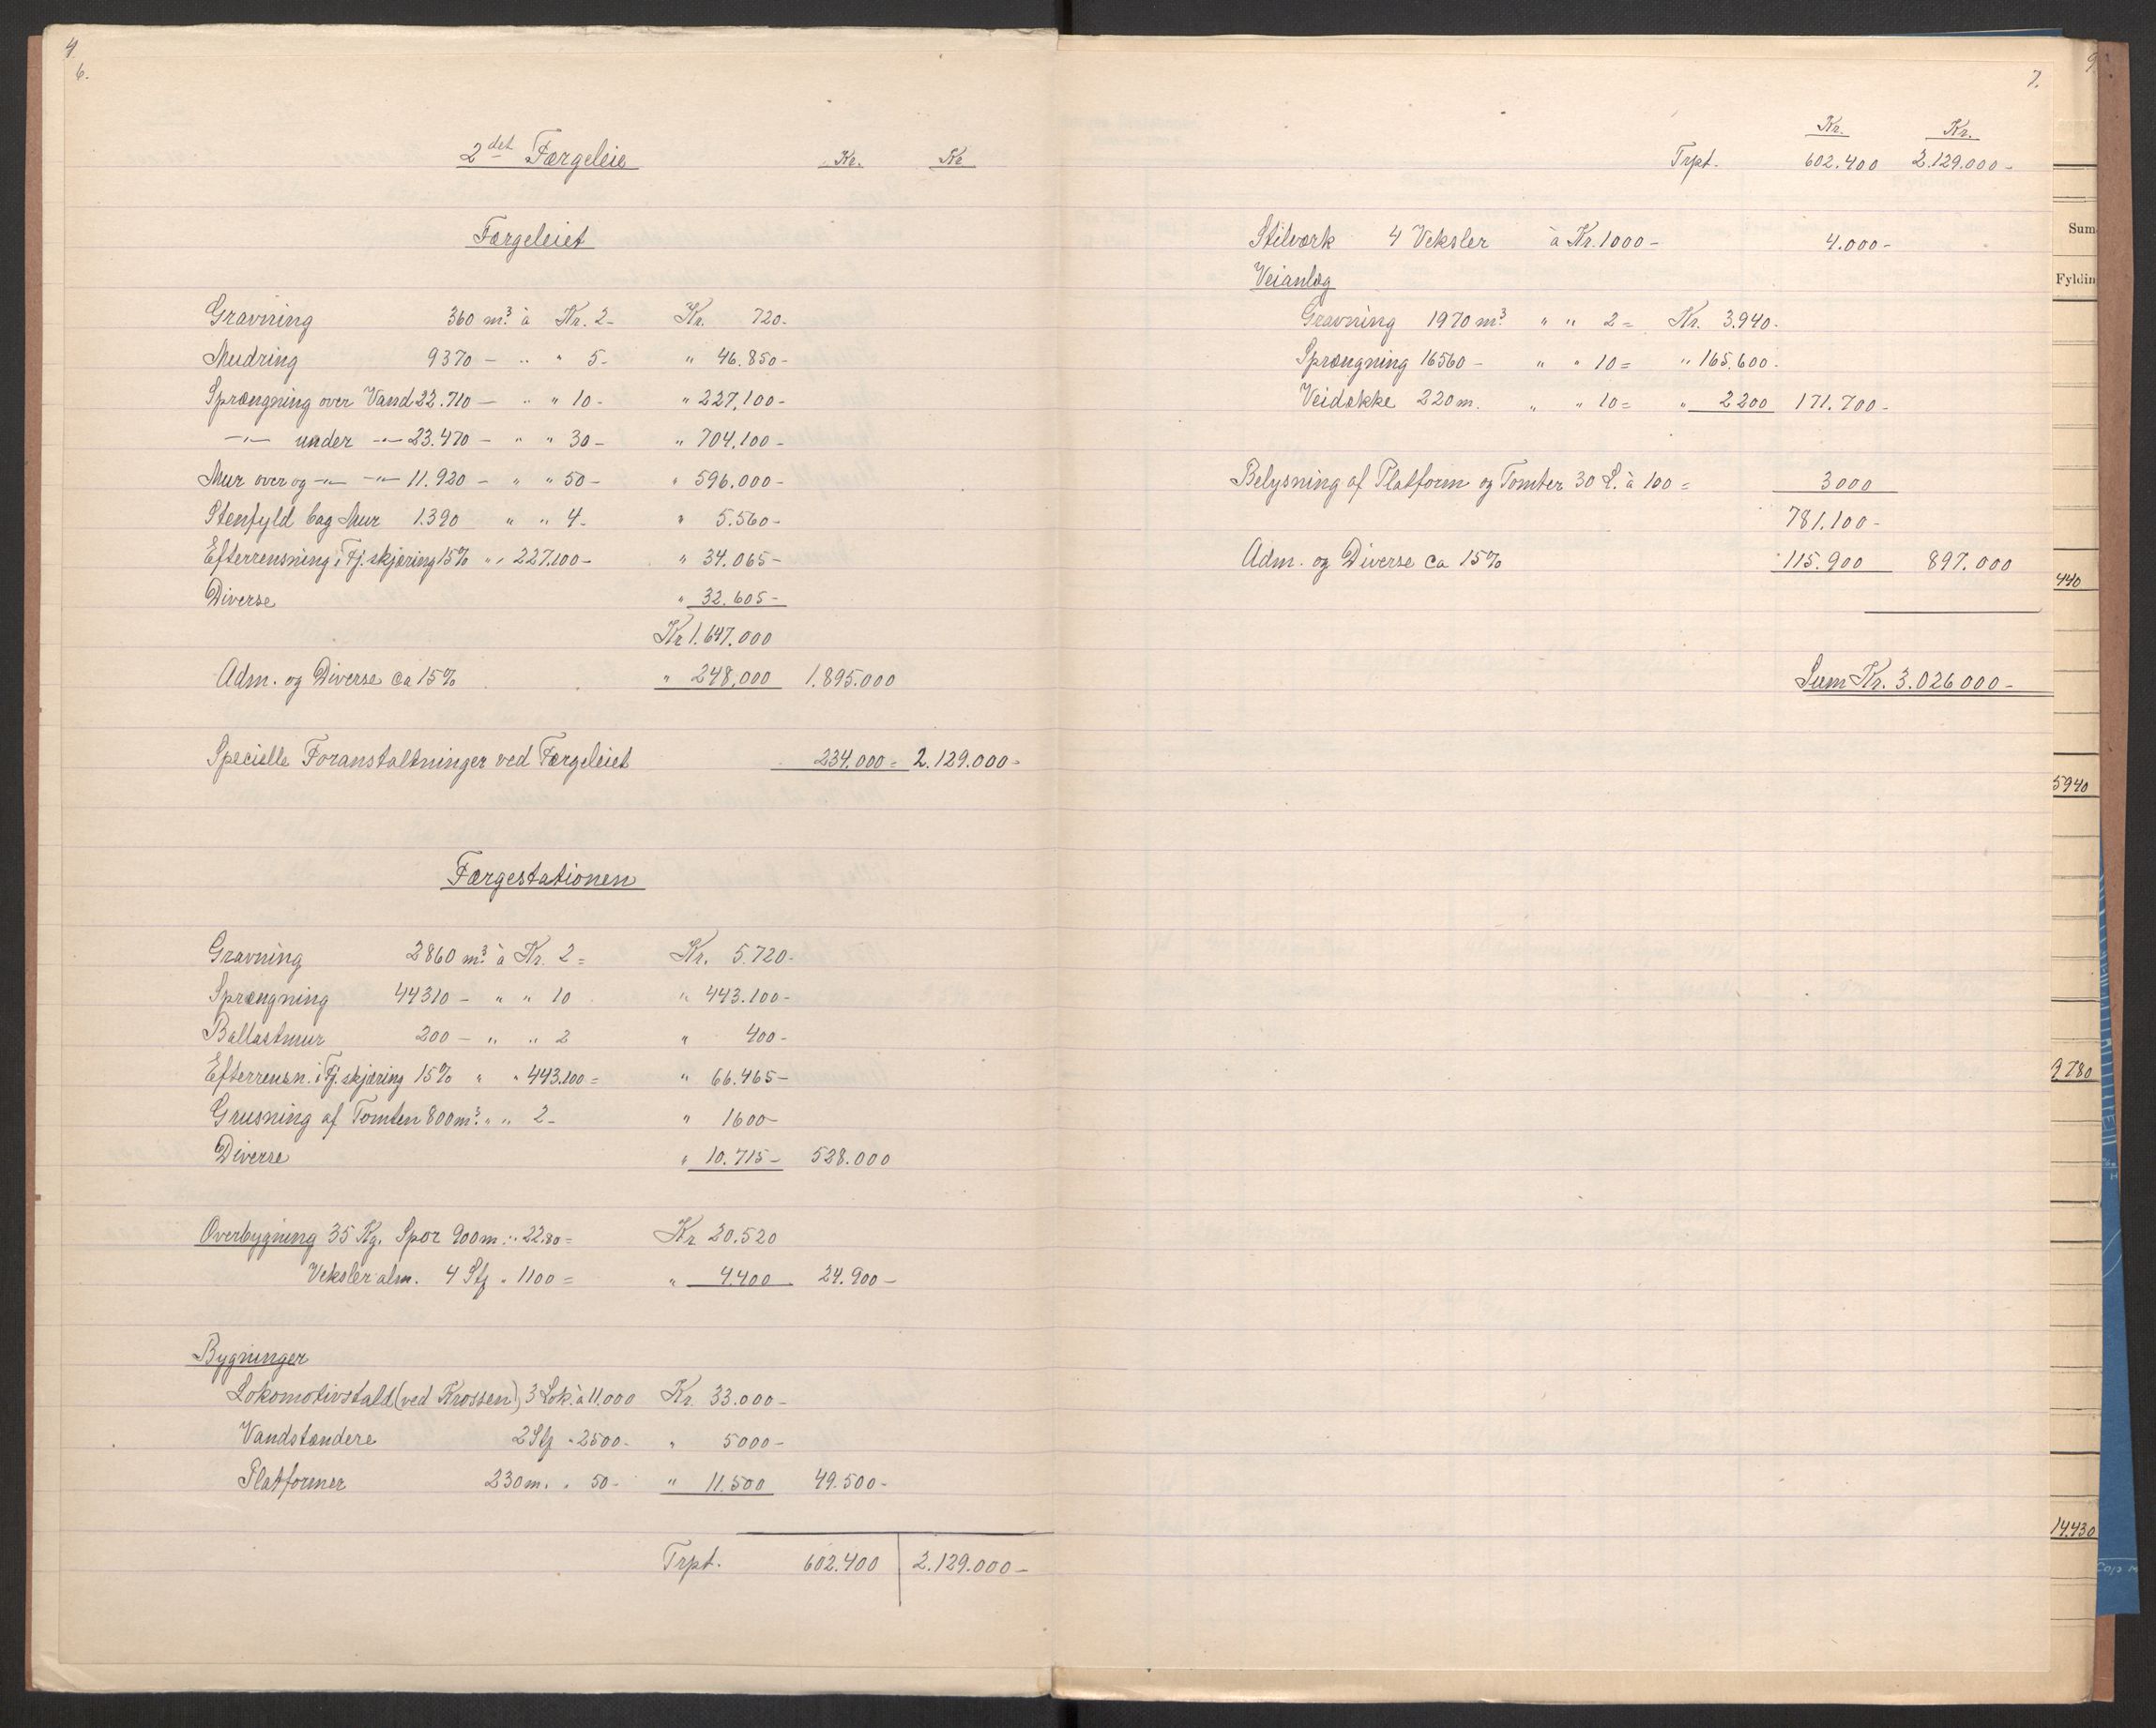 4
6.
2det Færgeleie Kr. Kr
Færgeleiet
Gravning 360 m³. à Kr. 2- Kr. 720-
Mudring 9370 — " " 5- " 46.850-
Sprængning over Vand 22.710 — " " 10- " 227,100-
—"— under —"— 23.470 — " " 30- " 704,100-
Mur over og —"— —"— 11.920 — " " 50- " 596.000-
Stenfyld bag Mur 1.390 " " 4- " 5.560-
Efterrensning i Fj. skjæring 15% " " 227.100- " 34.065-
Diverse " 32.605-
Kr 1.647.000
Adm. og Diverse ca 15% " 248,000 1.895.000
Specielle Foranstaltninger ved Færgeleiet 234.000- 2.129.000-
Færgestationen
Gravning 2860 m³. à Kr. 2= Kr. 5.720-
Sprængning 44310 — " " 10 " 443.100-
Ballastmur 200 — " " 2 " 400-
Efterrensn. i Fj. skjæring 15% " " 443.100= " 66.465-
Grusning af Tomten 800 m³. " " 2- " 1600-
Diverse " 10.715- 528.000
Overbygning 35 Kg. Spor 900 m. " 22.80= Kr 20.520
Veksler alm. 4 Stg " 1100= " 4.400 24.900-
Bygninger
Lokomotivstald (ved Krossen) 3 Lok. à 11.000 Kr. 33.000-
Vandstændere 2 Stg " 2500- " 5000-
Platformer 230 m. " 50- " 11.500 49.500-
Trpt. 602.400 2.129.000-
7.
Kr. Kr.
Trpt. 602.400 2.129.000-
Stilværk 4 Veksler à Kr. 1000- 4.000-
Veianlæg
Gravning 1970 m³. " " 2= Kr. 3.940-
Sprængning 16560 — " " 10= " 165.600-
Veidække 220 m. " " 10= " 2200 171.700-
Belysning af Platform og Tomter 30 L. à 100= 3000
781.100-
Adm. og Diverse ca 15% 115.900 897.000
Sum Kr. 3.026000-
9
Sum
Fyldin
440
5940
9780
14.430